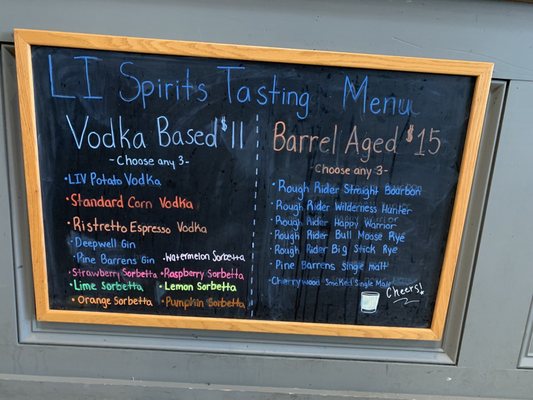 LI Spirits Tasting Menu
Vodka Based $11
- Choose any 3-
• LIV Potato Vodka
• Standard Corn Vodka
• Ristretto Espresso Vodka
• Deepwell Gin
• Pine Barrens Gin
• Watermelon Sorbetta
• Strawberry Sorbetta
• Raspberry Sorbetta
• Lime Sorbetta
• Lemon Sorbetta
• Orange Sorbetta
• Pumpkin Sorbetta
Barrel Aged $15
- Choose any 3-
• Rough Rider Straight Bourbon
• Rough Rider Wilderness Hunter
• Rough Rider Happy Warrior
• Rough Rider Bull Moose Rye
• Rough Rider Big Stick Rye
• Pine Barrens Single malt
• Cherrywood Smoked Single Malt
Cheers!